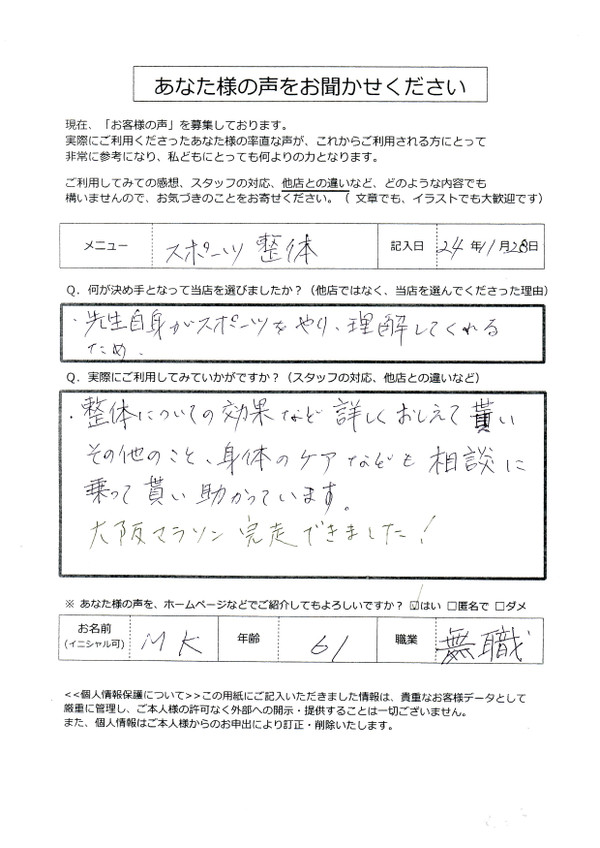 あなた様の声をお聞かせください
現在、「お客様の声」を募集しております。
実際にご利用くださったあなた様の率直な声が、これからご利用される方にとって
非常に参考になり、私どもにとっても何よりの力となります。
ご利用してみての感想、スタッフの対応、他店との違いなど、どのような内容でも
構いませんので、お気づきのことをお寄せください。（ 文章でも、イラストでも大歓迎です）
メニュー スポーツ 整体 記入日 24年11月28日
Q．何が決め手となって当店を選びましたか？（他店ではなく、当店を選んでくださった理由）
・先生自身がスポーツをやり、理解してくれる
ため、
Q．実際にご利用してみていかがですか？（スタッフの対応、他店との違いなど）
・整体についての効果など詳しくおしえて貰い
その他のこと、身体のケアなども相談に
乗って貰い助かっています。
大阪マラソン完走できました！
※ あなた様の声を、ホームページなどでご紹介してもよろしいですか？ ☑はい □匿名で □ダメ
お名前 MK 年齢 61 職業 無職
(イニシャル可)
<<個人情報保護について>>この用紙にご記入いただきました情報は、貴重なお客様データとして
厳重に管理し、ご本人様の許可なく外部への開示・提供することは一切ございません。
また、個人情報はご本人様からのお申出により訂正・削除いたします。